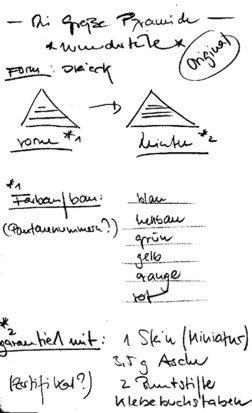 — Die große Pyramide —
* Wundertüte *
Original
Form: Dreieck
vorne *1
hinten *2
*1
Farbaufbau: blau
(Pantonenummern?) hellblau
grün
gelb
orange
rot
*2
garantiert mit: 1 Stein (Miniatur)
3,5 g Asche
(Zertifikat?) 2 Buntstifte
Klebebuchstaben